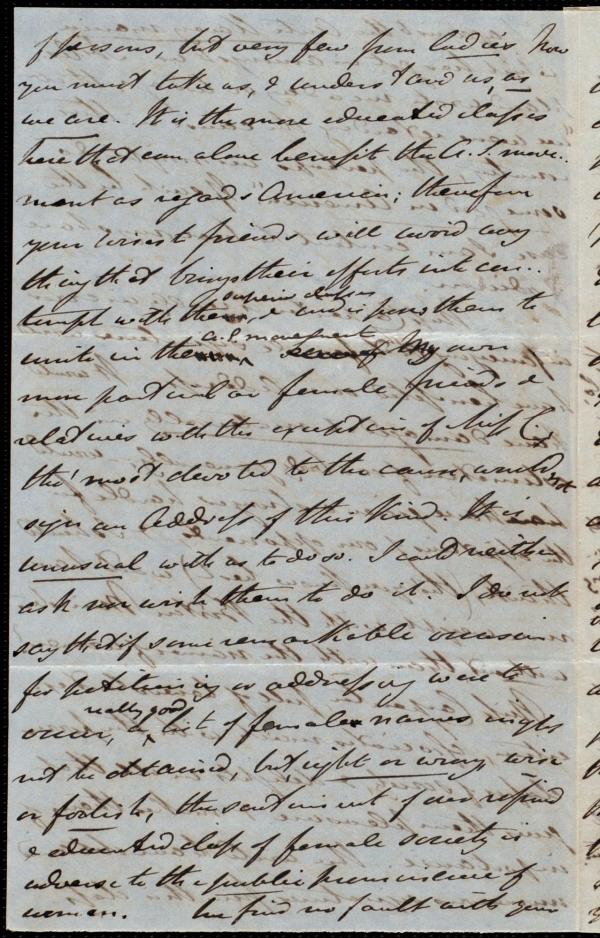 of persons, but very few from ladies. Now
you must take us, & understand us, as
we are. It is the more educated classes
here that can alone benefit the A. S. move..
ment as regards America; therefore
your wisest friends will avoid any
thing that brings their efforts into con..
tempt with the superior classes & indisposes them to
unite in the a. S. movement. My own
more particular female friends &
relatives with the exception of Miss C,
tho' most devoted to the cause, would not
sign an Address of this kind. It is
unusual with us to do so. I could neither
ask nor wish them to do it. I do not
say that if some remarkable occasion
for petitioning or addressing were to
occur, a really good list of female names might
not be obtained, but, right or wrong, wise
or foolish, the sentiment of our refined
& educated class of female society is
adverse to the public prominence of
women. We find no fault with your